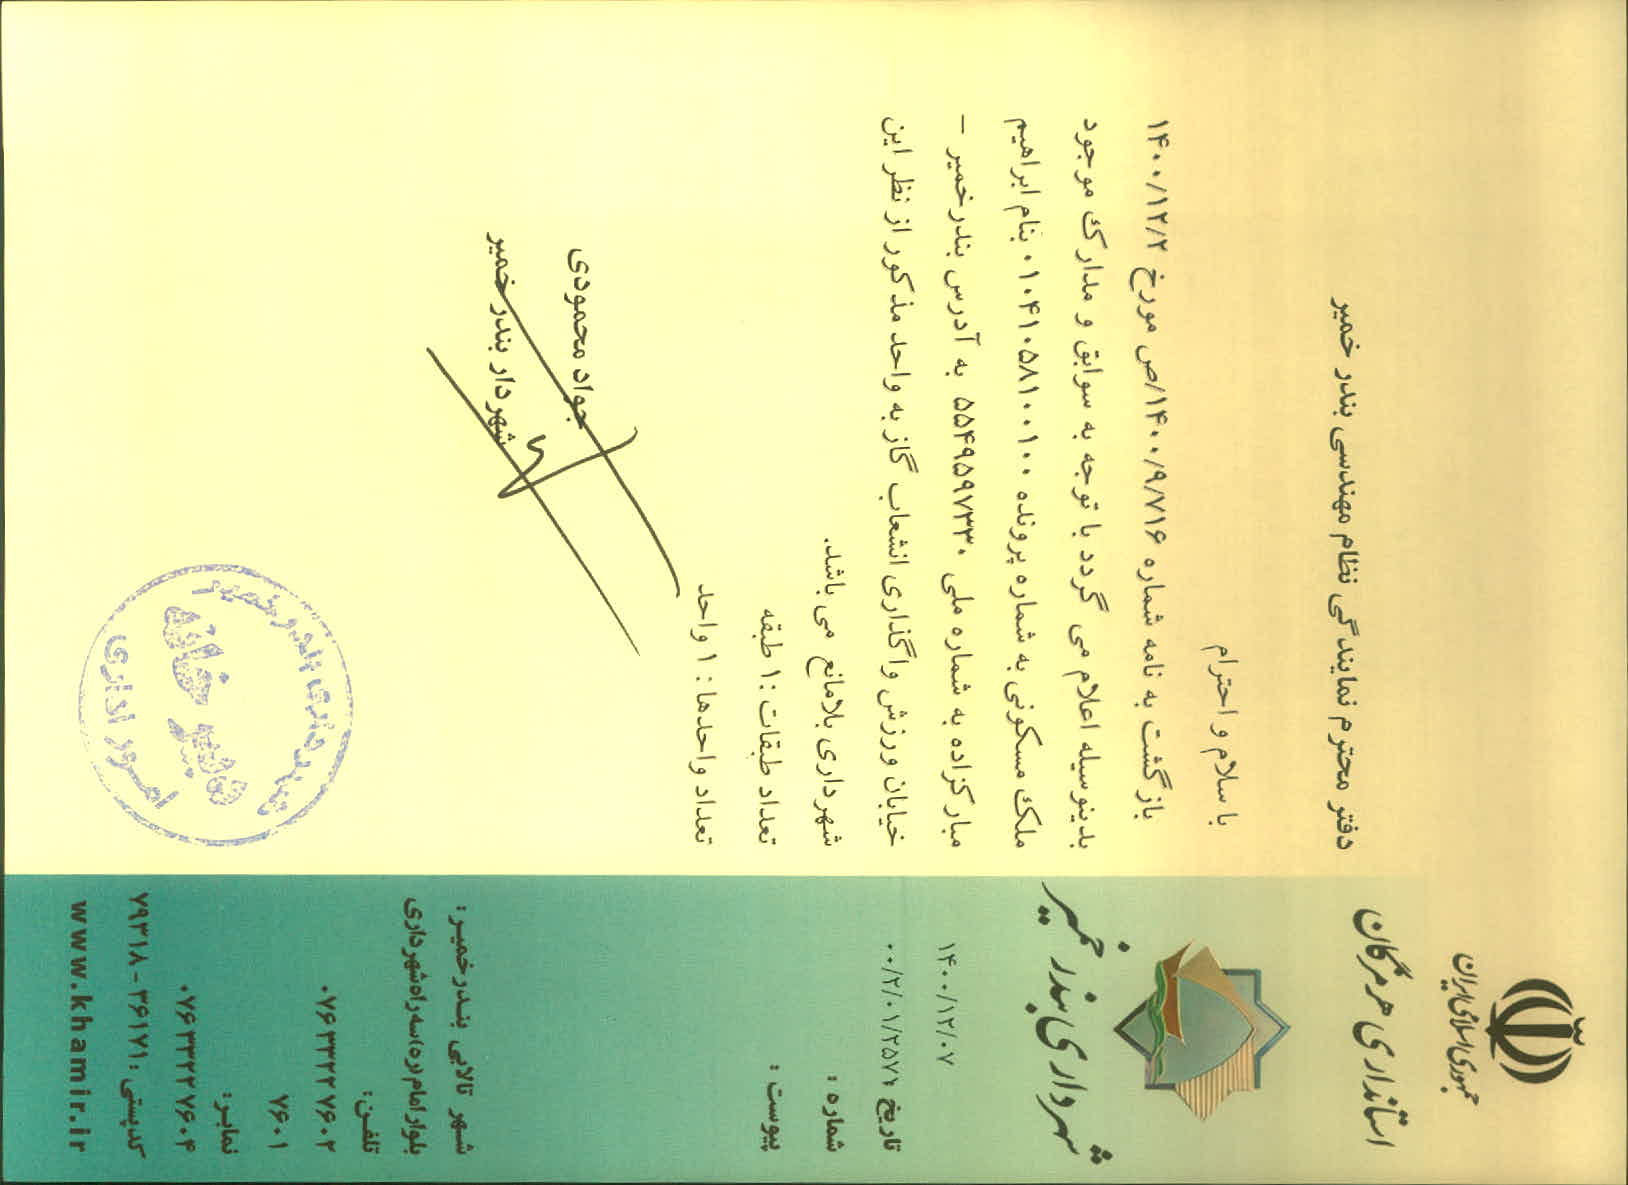 جمهوری اسلامی ایران
استانداری هرمزگان
شهرداری بندر خمیر
۱۴۰۰/۱۲/۰۷
تاریخ :
۰۰/۲/۰۱/۲۵۷۱
شماره :
پیوست :
شهر تالابی بندرخمیر:
بلوار امام(ره)سه راه شهرداری
تلفن:
۰۷۶۳۳۲۲۷۶۰۲
۷۶۰۱
نمابر:
۰۷۶۳۳۲۲۷۶۰۴
کدپستی: ۳۶۱۷۱ - ۷۹۳۱۸
www.khamir.ir
دفتر محترم نمایندگی نظام مهندسی بندر خمیر
با سلام و احترام
بازگشت به نامه شماره ۱۴۰۰/۹/۷۱۶/ص مورخ ۱۴۰۰/۱۲/۲
بدینوسیله اعلام می گردد با توجه به سوابق و مدارک موجود
ملک مسکونی به شماره پرونده ۰۱۰۴۱۰۵۸۱۰۰۱۰۰ بنام ابراهیم
مبارکزاده به شماره ملی ۵۵۴۹۵۹۷۳۳۰ به آدرس بندرخمیر –
خیابان ورزش واگذاری انشعاب گاز به واحد مذکور از نظر این
شهرداری بلامانع می باشد.
تعداد طبقات : ۱ طبقه
تعداد واحدها : ۱ واحد
جواد محمودی
شهردار بندر خمیر
شهرداری بندر خمیر
دبیرخانه
امور اداری